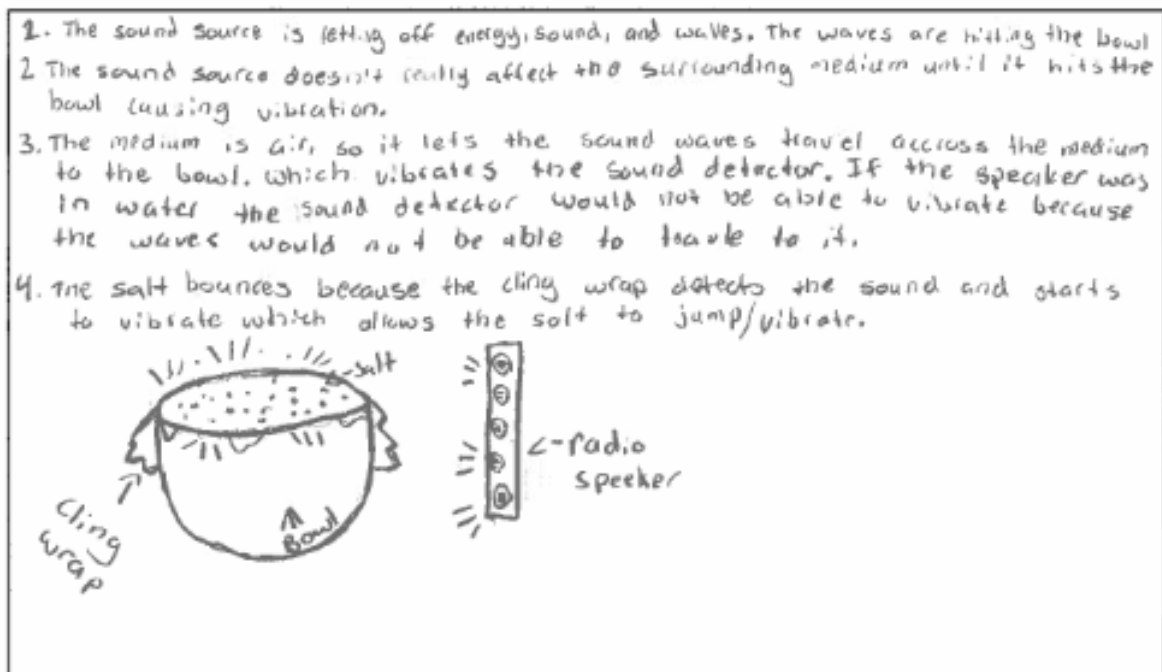 1. The sound source is letting off energy, sound, and waves. The waves are hitting the bowl
2 The sound source doesn't really affect the surrounding medium until it hits the
bowl causing vibration.
3. The medium is air, so it lets the sound waves travel accross the medium
to the bowl. which vibrates the sound detector. If the speaker was
in water the sound detector would not be able to vibrate because
the waves would not be able to travle to it.
4. The salt bounces because the cling wrap detects the sound and starts
to vibrate which allows the salt to jump/vibrate.
salt
radio
speeker
Bowl
cling
wrap